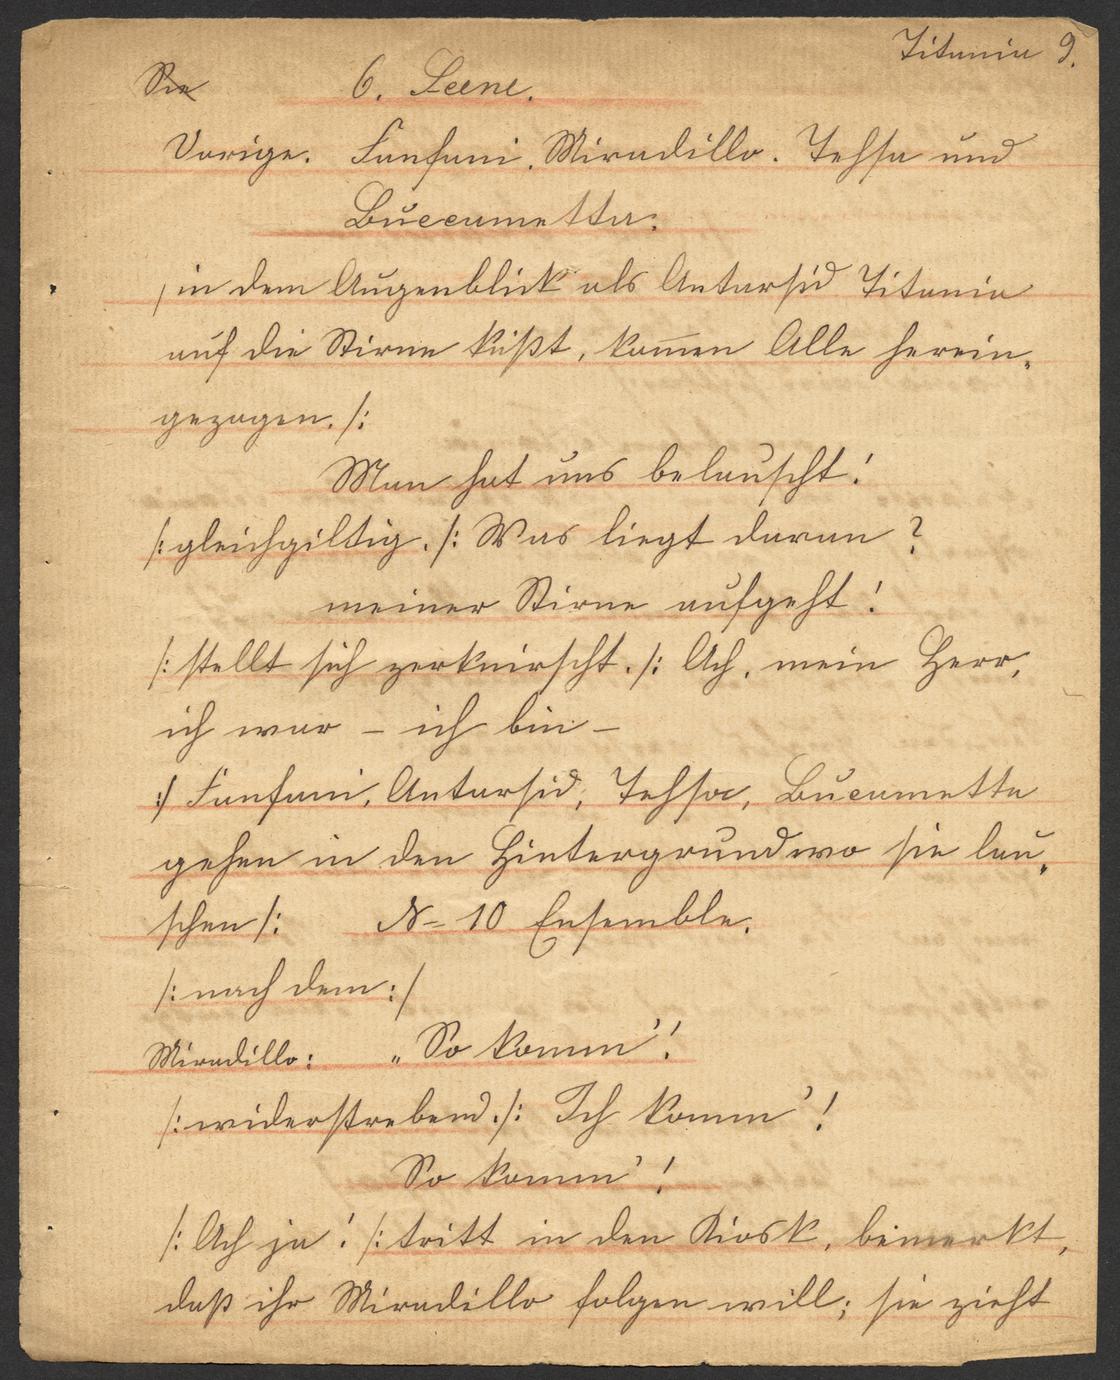 Titania 9.
Sie 6. Scene.
Vorige. Fanfani, Miradillo. Tessa und
Buccametta.
/ in dem Augenblick als Antarsid Titania
auf die Stirne küßt, kom̅en Alle herein-
gezogen. /:
Man hat uns belauscht!
/: gleichgiltig. /: Was liegt daran?
meiner Stirne aufgeht!
/: stellt sich zerknirscht. /: Ach, mein Herr,
ich war – ich bin –
:/ Fanfani, Antarsid, Tessa, Bucametta
gehen in den Hintergrund wo sie lau-
schen /: No 10 Ensemble.
/: nach dem :/
Miradillo: „So komm'!
/: widerstrebend. /: Ich komm'!
So komm'!
/: Ach ja! /: tritt in den Kiosk, bemerkt,
daß ihr Miradillo folgen will; sie zieht